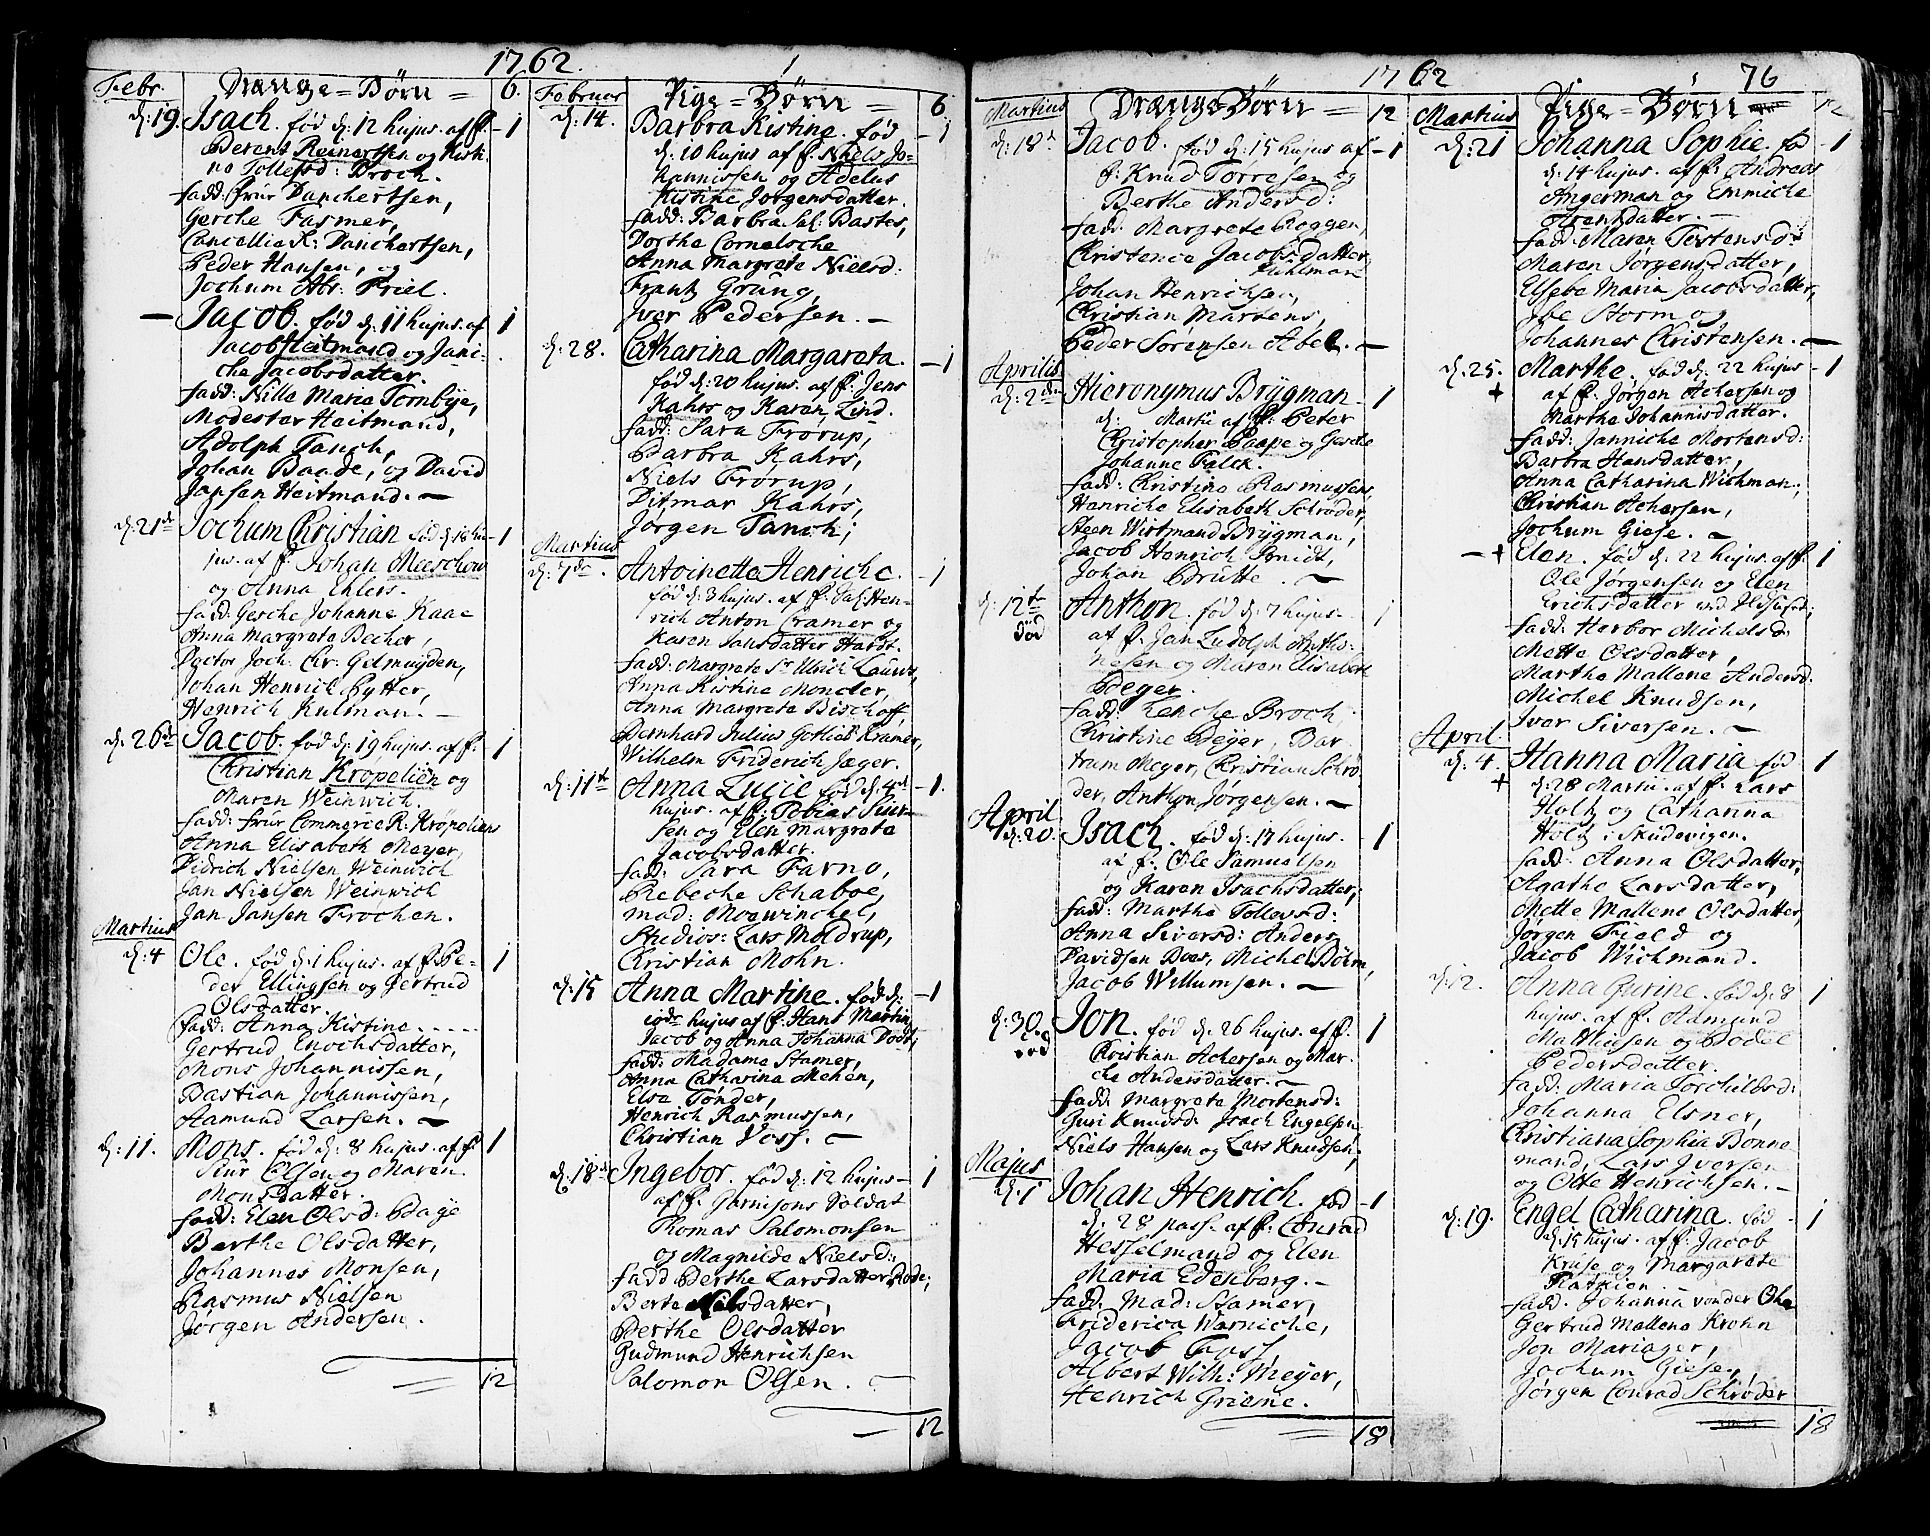 1762.
Febr. Drænge-Börn = 6.
d: 19. Isach. fød d: 12 hujus. af f. 1
Berent Reinertsen og Kisti
na Tollefsd: Broch.
fadd: frur Danchertsen,
Gerche Fasmer,
Cancellie R: Danchertsen,
Peder Hansen, og
Jochum Abr: Friel.
Jacob. fød d: 11 hujus. af 1
Jacob Heitmand og Jani-
che Jacobsdatter.
fadd: Nille Marie Tornbÿe,
Modester Heitmand,
Adolph Tanch,
Johan Baade, og David
Jansen Heitmand.
d: 21de Jochum Christian fød d: 18 hu- 1
jus. af f. Johan Meeschow
og Anna Ehlers.
fadd: Gesche Johanne Kaae
Anna Margrete Becher,
Doctor Joch: Chr: Gelmuÿden,
Johan Henrich Pytter,
Henrich Kulman.
d: 26de Jacob. fød d: 19 hujus. af f. 1
Christian Kropelien og
Maren Weinwich.
fadd: frur Commercie R. Kröpeliens
Anna Elisabeth Meyer,
Didrich Nielsen Weinwich
Jan Nielsen Weinwich
Jan Jansen Trochen.
Martius
d: 4 Ole. fød d: 1 hujus. af f. Pe- 1
der Ellingsen og Gertrud
Olsdatter.
fadd: Anna Kistine.....
Gertrud Enochsdatter,
Mons Johannissen,
Bastian Johannissen,
Aamund Larsen.
d: 11. Mons. fød d: 8 hujus. af f. 1
Siur Olsen og Maren
Monsdatter.
fadd: Elen Olsd: Bage
Berthe Olsdatter,
Johannes Monsen,
Rasmus Nielsen
Jørgen Andersen.
12
Februar Pige-Börn = 6
d: 14. Barbra Kistine. fød 1
d: 10 hujus af f. Niels Jo-
hannissen og Adelus
Kistine Jørgensdatter.
fadd: Barbra Sal: Bastes,
Dorthe Cornelsche
Anna Margrete Nielsd:
Frantz Grung,
Iver Pedersen.
d: 28. Catharina Margareta. 1
fød d: 20 hujus. af f. Jens
Kahrs og Karen Lind.
fadd: Sara Frørup,
Barbra Kahrs,
Niels Frørup,
Ditmar Kahrs,
Jørgen Tanch;
Martius
d: 7de. Antoinette Henriche. 1
fød d: 3 hujus. af f. Sal: Hen-
rich Anton Cramer og
Karen Jansdatter Hardt.
fadd: Margrete Sr Ulrich Lauws,
Anna Kistine Moncler,
Anna Margrete Bischoff,
Bernhard Julius Gotlieb Kramer,
Wilhelm Friderich Jæger.
d: 11te Anna Lucie fød d: 4de 1.
hujus. af f. Tobias Siur-
sen og Elen Margrete
Jacobsdatter.
fadd: Sara Farno,
Rebeche Schaboe,
Mad: Moewinchel,
Studios: Lars Moldrup,
Christian Mohn.
d: 15 Anna Martine. fød d: 1
hujus af f. Hans Martin
Jacob og Anna Johanna Dodt,
fadd: Madame Stamer,
Anna Catharina Mehen,
Elsa Tønder,
Henrich Rasmussen,
Christian Voss.
d: 18de Ingebor. fød d: 12 hujus 1
af f. Garnisons Soldat
Thomas Salomonsen
og Magnilde Nielsd:
fadd Berthe Larsdatter Rode,
Berte Nilsdatter,
Berthe Olsdatter
Gudmund Henrichsen
Salomon Olsen.
12
1762 76
Martius Drænge-Börn = 12
d: 18de Jacob. fød d: 15 hujus af 1
f. Knud Torresen og
Berthe Andersd:
fadd: Margrete Roggen,
Christence Jacobsdatter
Kuhlman
Johan Henrichsen,
Christian Martens,
Peder Sørensen Abel.
Aprilis
d: 2den Hieronymus Brÿgman 1
d: Martii af f. Peter
Christopher Paape og Gesche
Johanne Falck.
fadd: Christine Rasmussens
Henriche Elisabeth Schrøder,
Steen Wirtmand Brÿgman,
Jacob Henrich Smidt,
Johan Grütte.
d: 12te Anthon. fød d: 7 hujus. 1
død af f. Jan Ludolph Antho-
nesen og Maren Elisabeth
Geger.
fadd: Lenche Broch
Christine Beÿer, Bar
trum Meyer, Christian Schrø-
der, Anthon Jørgensen.
April
d: 20. Isach. fød d: 17 hujus. 1
af f. Ole Samuelsen
og Karen Isachsdatter;
fadd: Marthe Tollevsd:
Anna Siversd: Anders
Davidsen Boes, Michel Böhm,
Jacob Willumsen.
d: 30. Jon. fød d: 26 hujus. af f. 1
død Christian Achersen og Mar-
che Andersdatter.
fadd: Margrete Mortensd:
Guri Knudsd: Isach Engelsen
Niels Hansen og Lars Knudsen;
Majus
d: 1 Johan Henrich. fød 1
d: 28 pass. af f. Conrad
Hesselmand og Elen
Maria Edenberg.
fadd: Mad: Stamer,
Friderica Warniche,
Jacob Foss,
Albert Wilh: Meyer,
Henrich Grieme.
18
Martius Pige-Börn 12
d: 21 Johanna Sophie. fød 1
d: 14 hujus. af f. Andreas
Angerman og Emmiche
Arentsdatter.
fadd: Maren Torstensdr
Maren Jørgensdatter,
Elsebe Maria Jacobsdatter,
Ibe Storm og
Johannes Christensen.
d: 25. Marthe. fød d: 22 hujus 1
+ af f. Jørgen Achersen og
Marthe Johannisdatter.
fadd: Janniche Mortensd:
Barbra Hansdatter,
Anna Catharina Wichman,
Christian Achersen,
Jochum Giese.
+ Elen. fød d: 22 hujus af f. 1
Ole Jørgensen og Elen
Erichsdatter
fadd: Herbor Michelsd
Mette Olsdatter,
Marthe Mallene Andersd:
Michel Knudsen,
Iver Siversen.
April.
d: 4. Hanna Maria fød 1
+ d: 28 Martii af f. Lars
Holtz og Catharina
Holtz i Skudevigen.
fadd: Anna Olsdatter,
Agathe Larsdatter,
Mette Mallene Olsdatter,
Jørgen Field og
Jacob Wichmand.
d: 12. Anna Gurine. fød d: 8 1
hujus. af f. Admund
Mathiesen og Bodel
Pedersdatter.
fadd: Maria Torchildsd:
Johanna Elsner,
Christiana Sophia Bonne
mand, Lars Iversen
og Otte Henrichsen.
d: 19. Engel Catharina. fød 1
d: 15 hujus. af f. Jacob
Kruse og Margarete
Rathien
fadd. Johanna vonder Ohe
Gertrud Mallena Krohn
Jon Mariager,
Jochum Giese,
Jørgen Conrad Schrøder
18